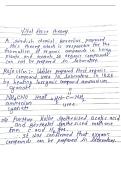 Vital Force Theory.
A Swedish chemist Berzelius proposed
this theory which is responsible for the
formation of organic compounds in living
plants and animals so organic compounds can
not be prepared in laboratory
Rejection: Wohler prepared first organic
compound urea in laboratory in 1828
by heating inorganic compound ammonium
cyanate
NH₄CNO Heat H₂N-C-NH₂
ammonium
cyanate
Further Kolbe synthesised acetic acid
and Berthelot synthesised methane
from C and H₂.
It was confirmed that organic
compounds can be prepared in laboratory.